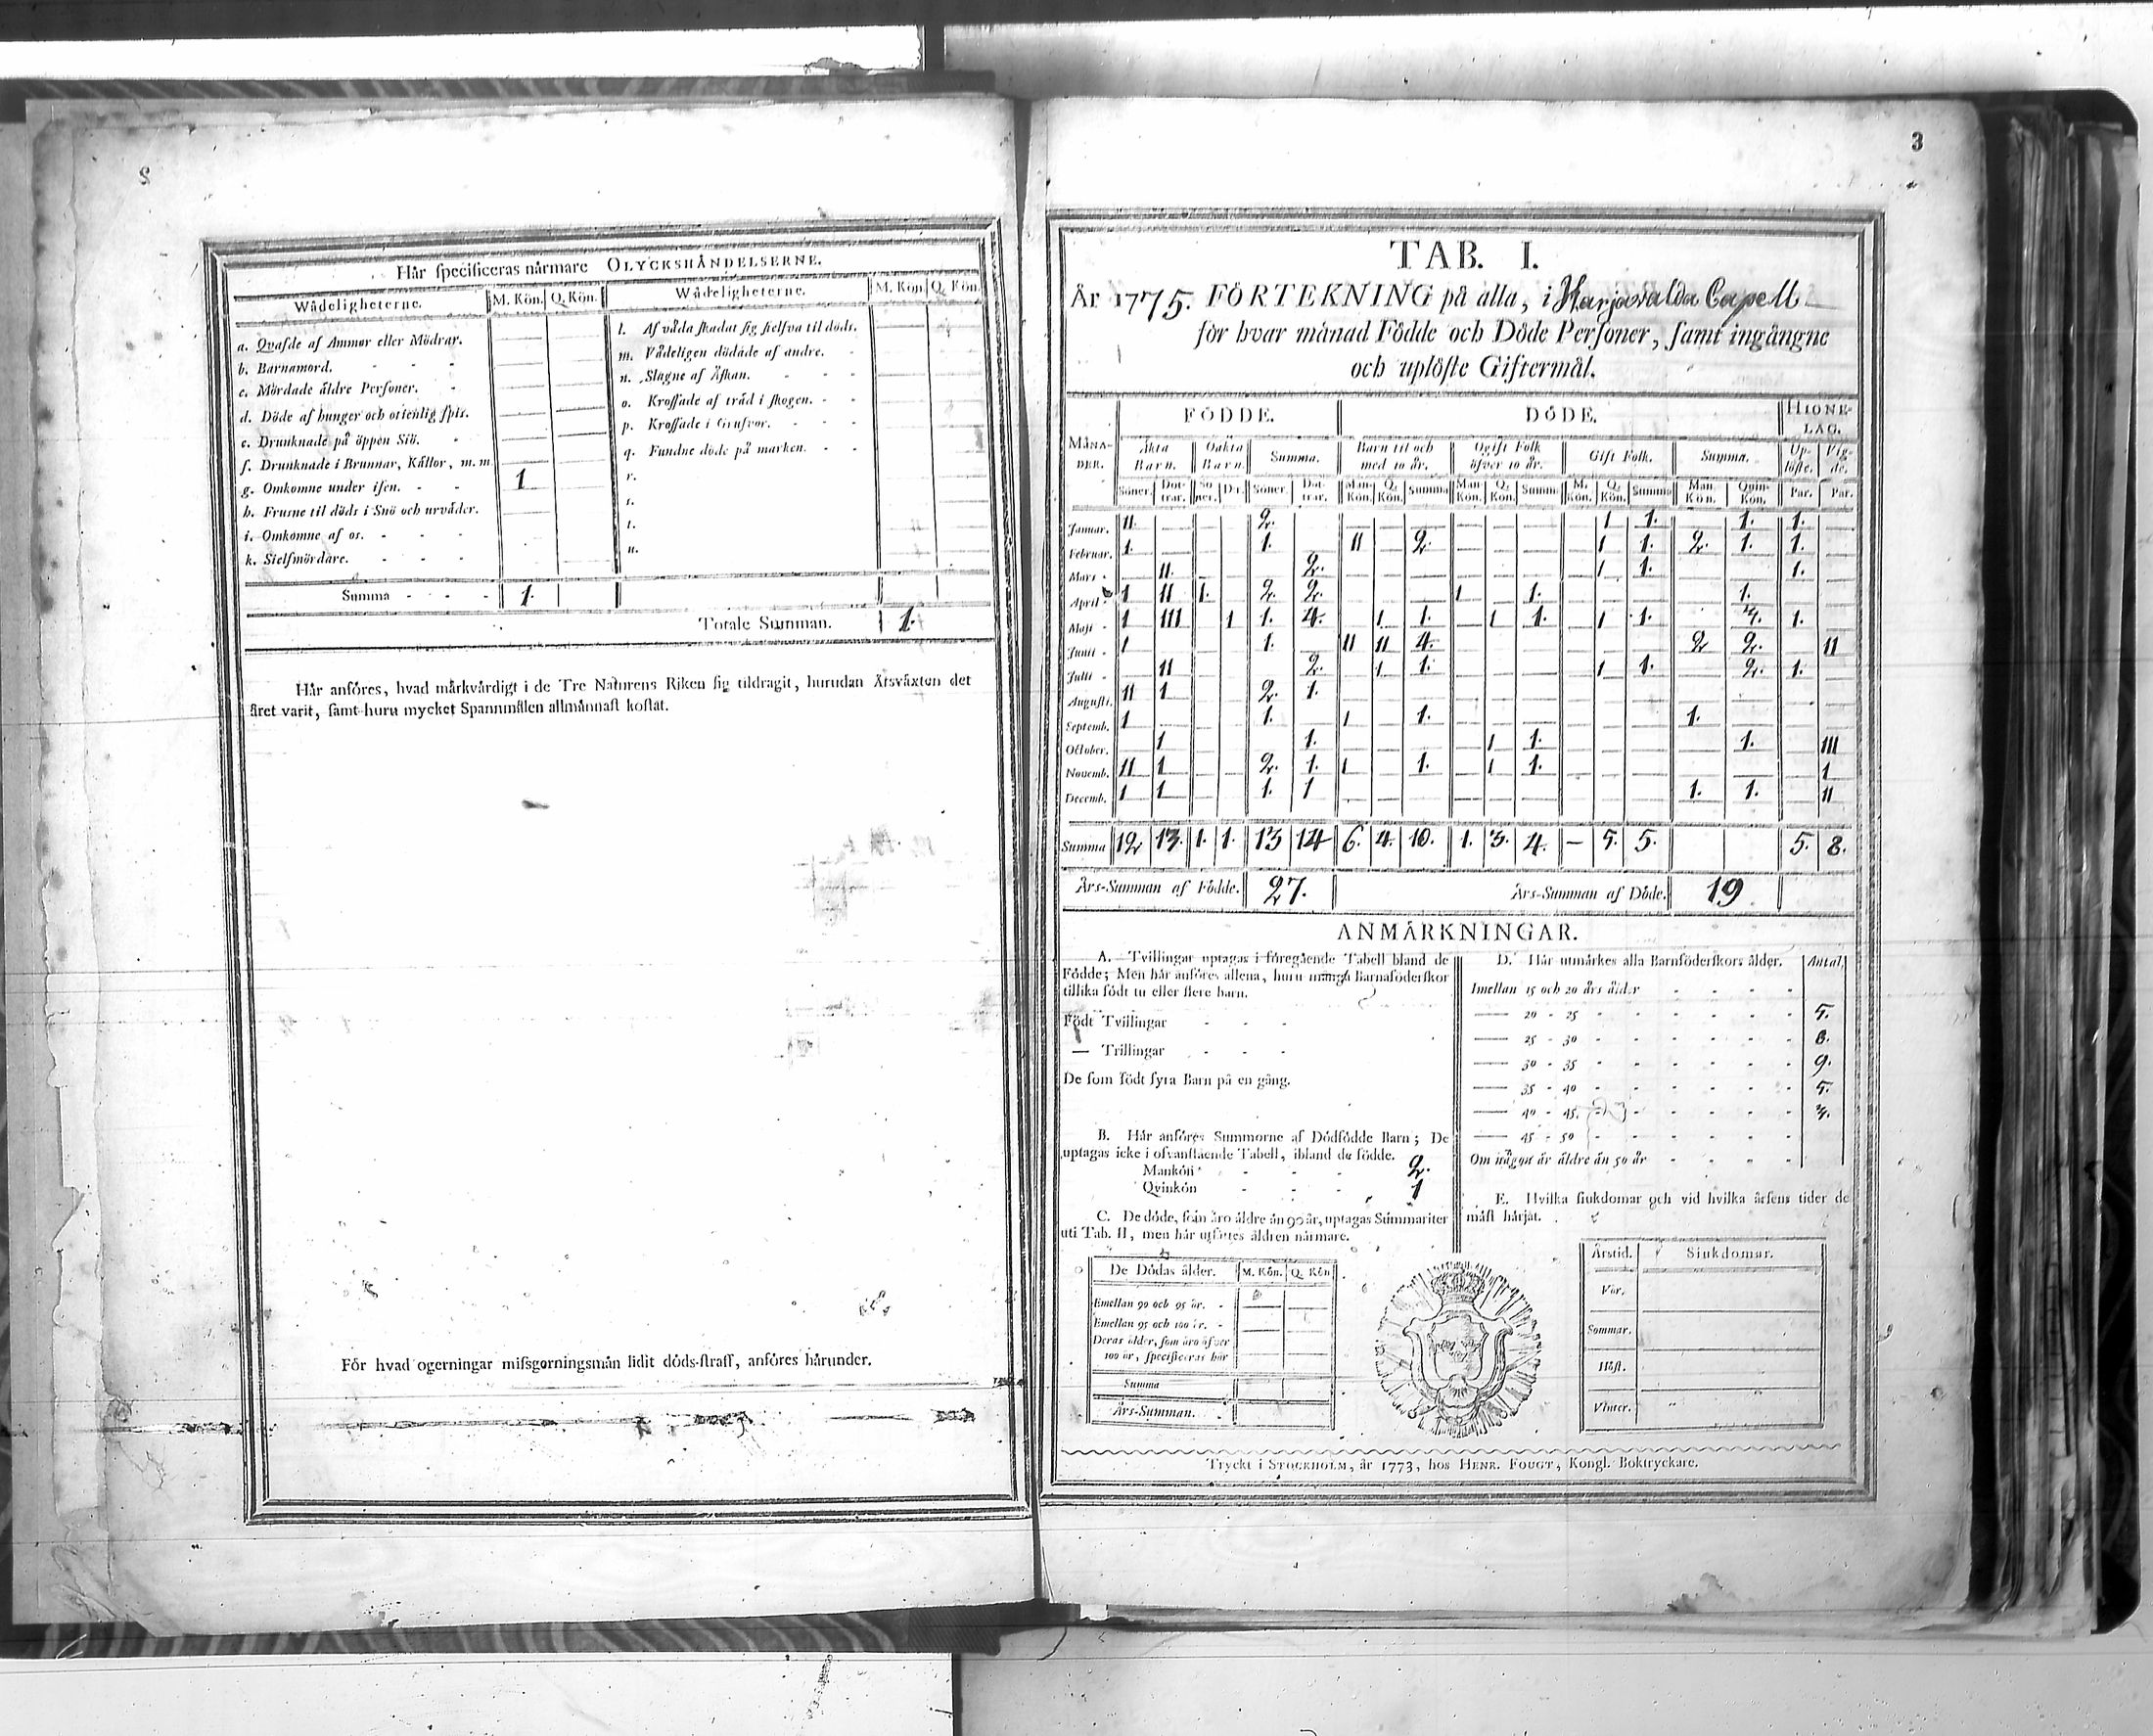 2
Här specificeras närmare OLYCKSHÄNDELSERNE.
Wådeligheterne. M. Kön. Q. Kön. Wådeligheterne. M. Kön. Q. Kön.
a. Qvafde af Ammor eller Mödrar. — — l. Af våda skadat sig sielfva til döds. — —
b. Barnamord. - - - — — m. Vådeligen dödade af andre. - — —
c. Mördade äldre Personer. - — — n. Slagne af Åskan. - - - — —
d. Döde af hunger och otienlig spis. — — o. Krossade af träd i skogen. - - — —
e. Drunknade på öppen Siö. - — — p. Krossade i Grufvor. - - - — —
f. Drunknade i Brunnar, Källor, m. m. q. Fundne döde på marken. - - — —
g. Omkomne under isen. - - 1 r.
h. Frusne til döds i Snö och urväder. s.
i. Omkomne af os. - - - t.
k. Sielfmördare. - - - u.
Summa - - - 1.
Totale Summan. 1.
Här anföres, hvad märkvärdigt i de Tre Naturens Riken sig tildragit, hurudan Årsväxten det
året varit, samt huru mycket Spannmålen allmännast kostat.
För hvad ogerningar missgerningsmän lidit döds-straff, anföres härunder.
3
TAB. I.
År 1775. FÖRTEKNING på alla, i Harjavalda Capell
för hvar månad Födde och Döde Personer, samt ingångne
och uplöste Giftermål.
FÖDDE. DÖDE. HIONE-LAG.
MÅNA-DER. Äkta Barn. Oäkta Barn. Summa. Barn til och med 10 år. Ogift Folk öfver 10 år. Gift Folk. Summa. Up-löste. Vig-de.
Söner. Dot-trar. Sö-ner. Dr. Söner. Dot-trar. Man-Kön. Q. Kön. Summa Man-Kön. Q. Kön. Summa M. Kön. Q. Kön. Summa Man. Kön. Qvin-Kön. Par. Par.
Januar. II. — — — 2. — — — — — — — 1 1. — 1. 1. —
Februar. 1. — — — 1. II — 2. — — — — 1 1. 2. 1. 1. —
Mars - — II. — — 2. — — — — — — — 1 1. 1. —
April - 1 II 1. — 2. 2. — — — 1 — 1. — — — 1. —
Maji - 1 III — 1 1. 4. — 1 1. — 1 1. — 1 1. 3. 1. —
Junii - 1 — — — 1. II II 4. — — — — — — 2 2. II
Julii - — II — — 2. — 1 1. — — — — 1 1. 2. 1. —
Augusti. II 1 — — 2. 1. — — — — — — — — — — — —
Septemb. 1 — — — 1. 1 — 1. — — — — — — 1. — —
October. — 1 — — 1. — — — — 1 1. — — — 1. III
Novemb. II 1 — — 2. 1. 1 — 1. — 1 1. — — — — — 1
Decemb. 1 1 — — 1. 1 — — — — — — — — — 1. 1. II
Summa 12 13. 1. 1. 13 14 6. 4. 10. 1. 3. 4. — 5. 5. 5. 8.
Års-Summan af Födde. 27. Års-Summan af Döde. 19
ANMÄRKNINGAR.
A. Tvillingar uptagas i föregående Tabell bland de
Födde; Men här anföres allena, huru många Barnaföderskor
tillika födt tu eller flere barn.
Födt Tvillingar - - -
— Trillingar - - -
De som födt fyra Barn på en gång.
B. Här anföres Summorne af Dödfödde Barn; De
uptagas icke i ofvanstående Tabell, ibland de födde.
Mankön - - - 2.
Qvinkön - - - 1
C. De döde, som äro äldre än 90 år, uptagas Summariter
uti Tab. II, men här utsättes åldren närmare.
De Dödas ålder. M. Kön. Q. Kön
Emellan 90 och 95 år. - — —
Emellan 95 och 100 år. - — —
Deras ålder, som äro öfver
100 år, specificeras här
Summa
Års-Summan.
D. Här utmärkes alla Barnföderskors ålder. Antal.
Imellan 15 och 20 års ålder - - - -
— 20 - 25 - - - - - 5.
— 25 - 30 - - - - - 8.
— 30 - 35 - - - - - 9.
— 35 - 40 - - - - - 5.
— 40 - 45. - - - - - 3.
— 45 - 50 - - - - -
Om någon är äldre än 50 år - - - -
E. Hvilka siukdomar och vid hvilka årsens tider de
mäst härjat.
Årstid. Siukdomar.
Vår.
Sommar.
Höst.
Vinter.
Tryckt i STOCKHOLM, år 1773, hos HENR. FOUGT, Kongl. Boktryckare.